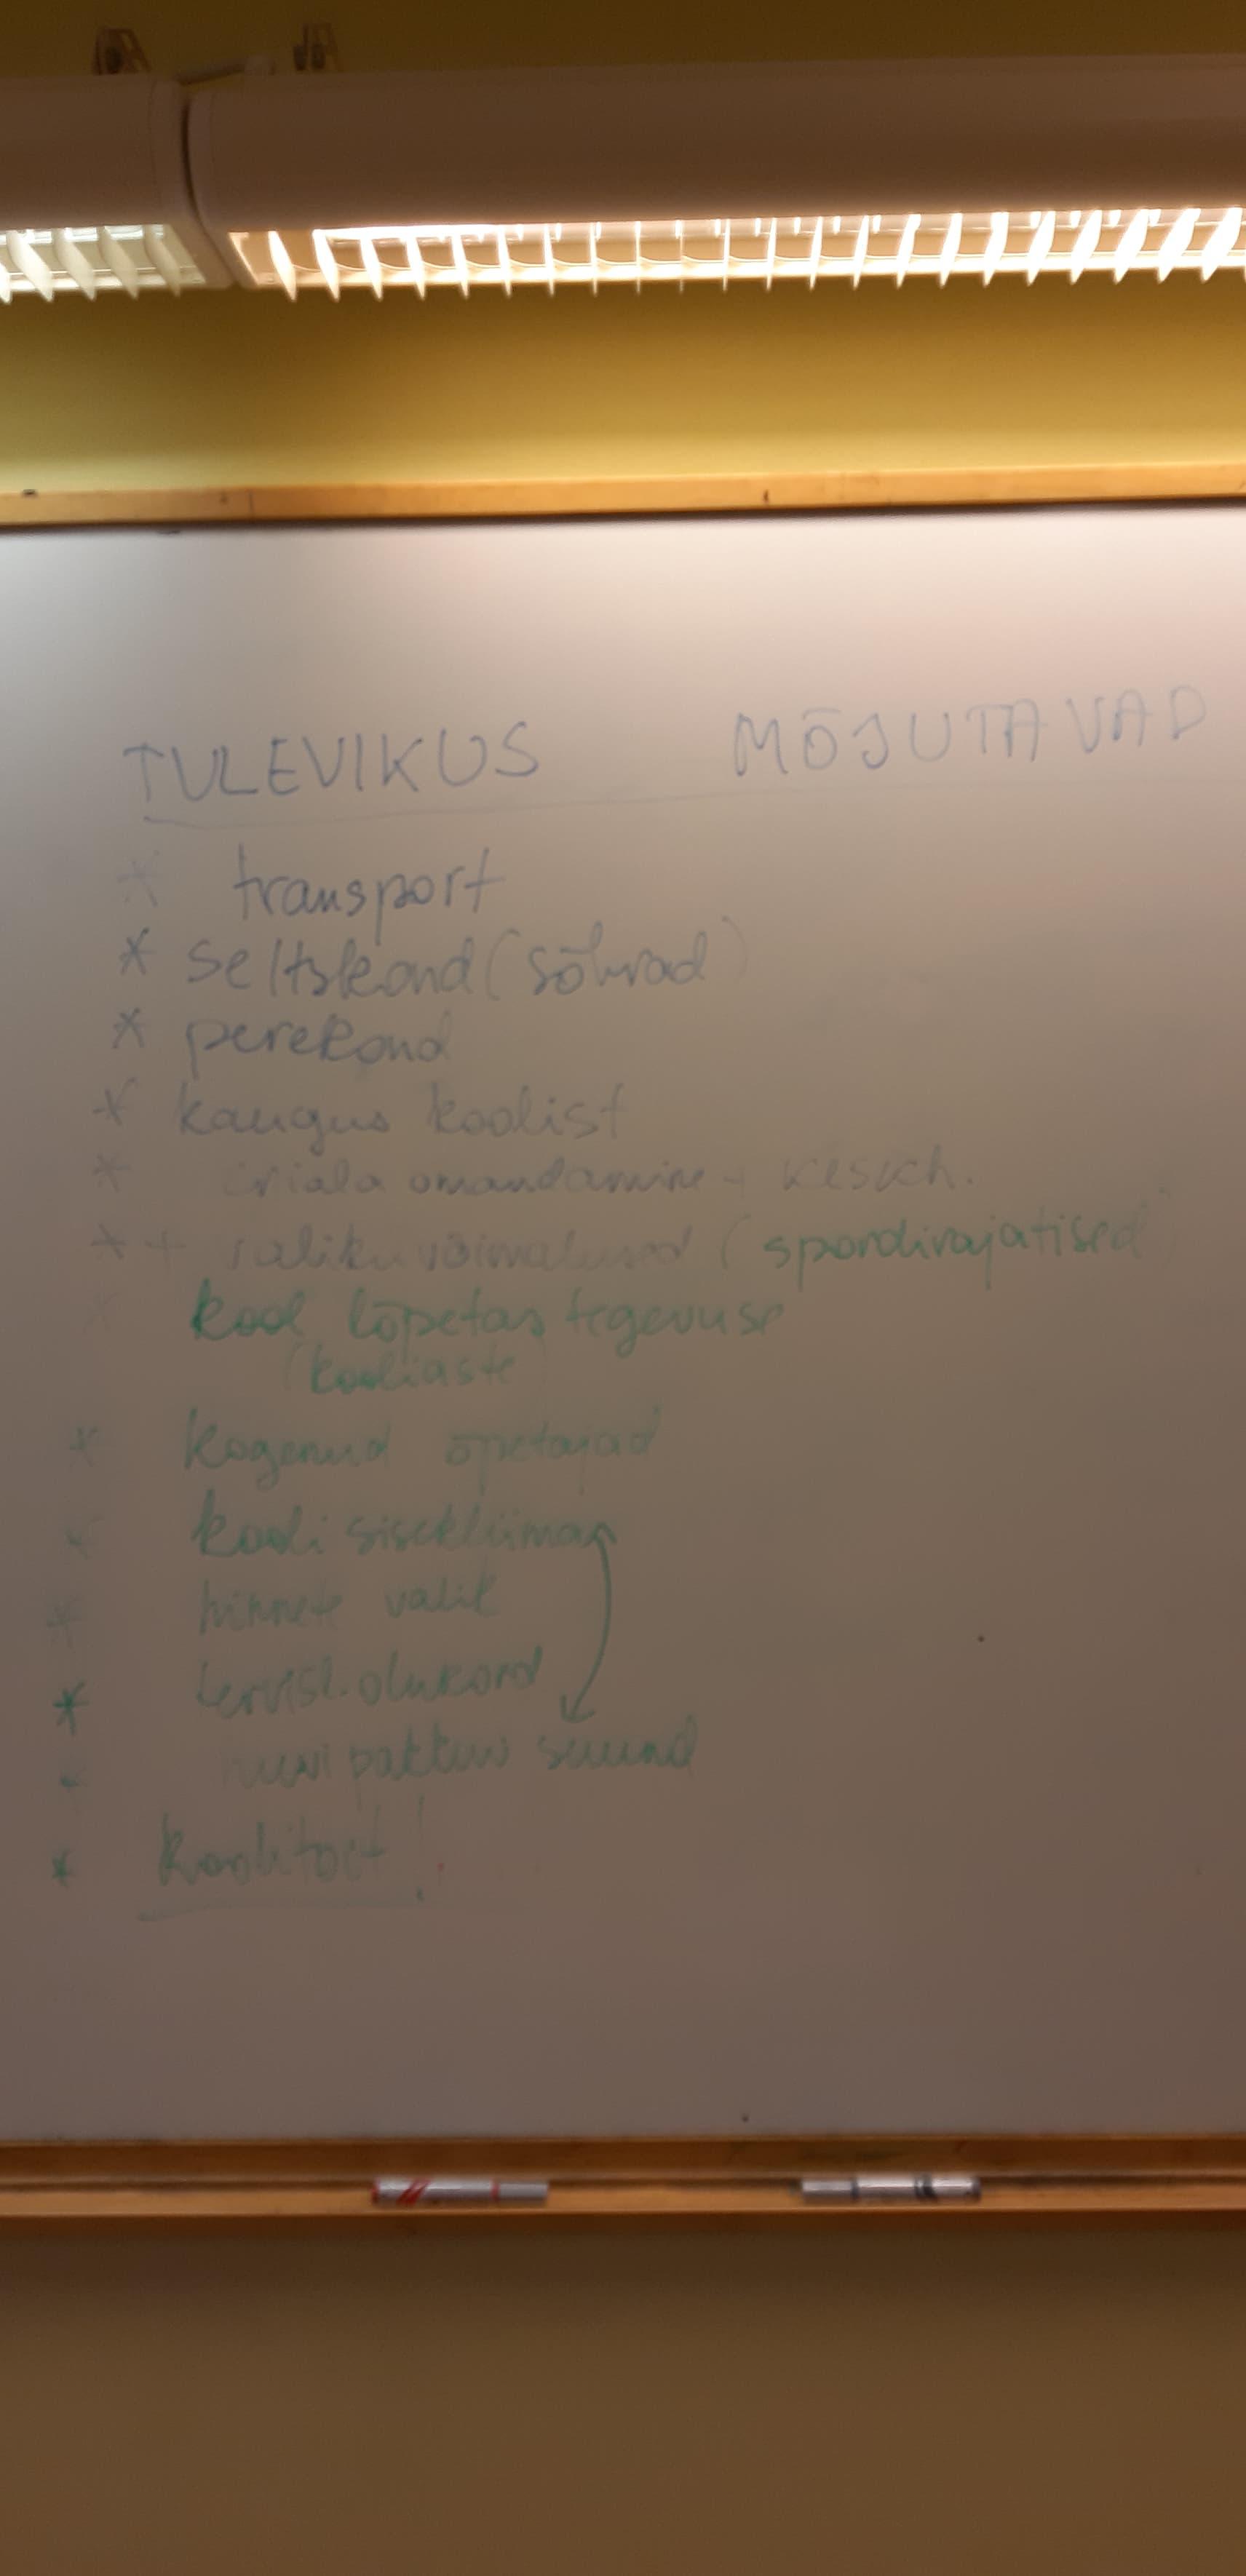 TULEVIKUS MÕJUTAVAD
* transport
* seltskond (sõbrad)
* perekond
* kaugus koolist
* eriala omandamine + keskh.
* + valikuvõimalused (spordirajatised)
kool lõpetas tegevuse
(kooliaste)
* kogenud õpetajad
* kooli sisekliima
* hinnete valik
* tervisl. olukord
* suund
* koolitoit!